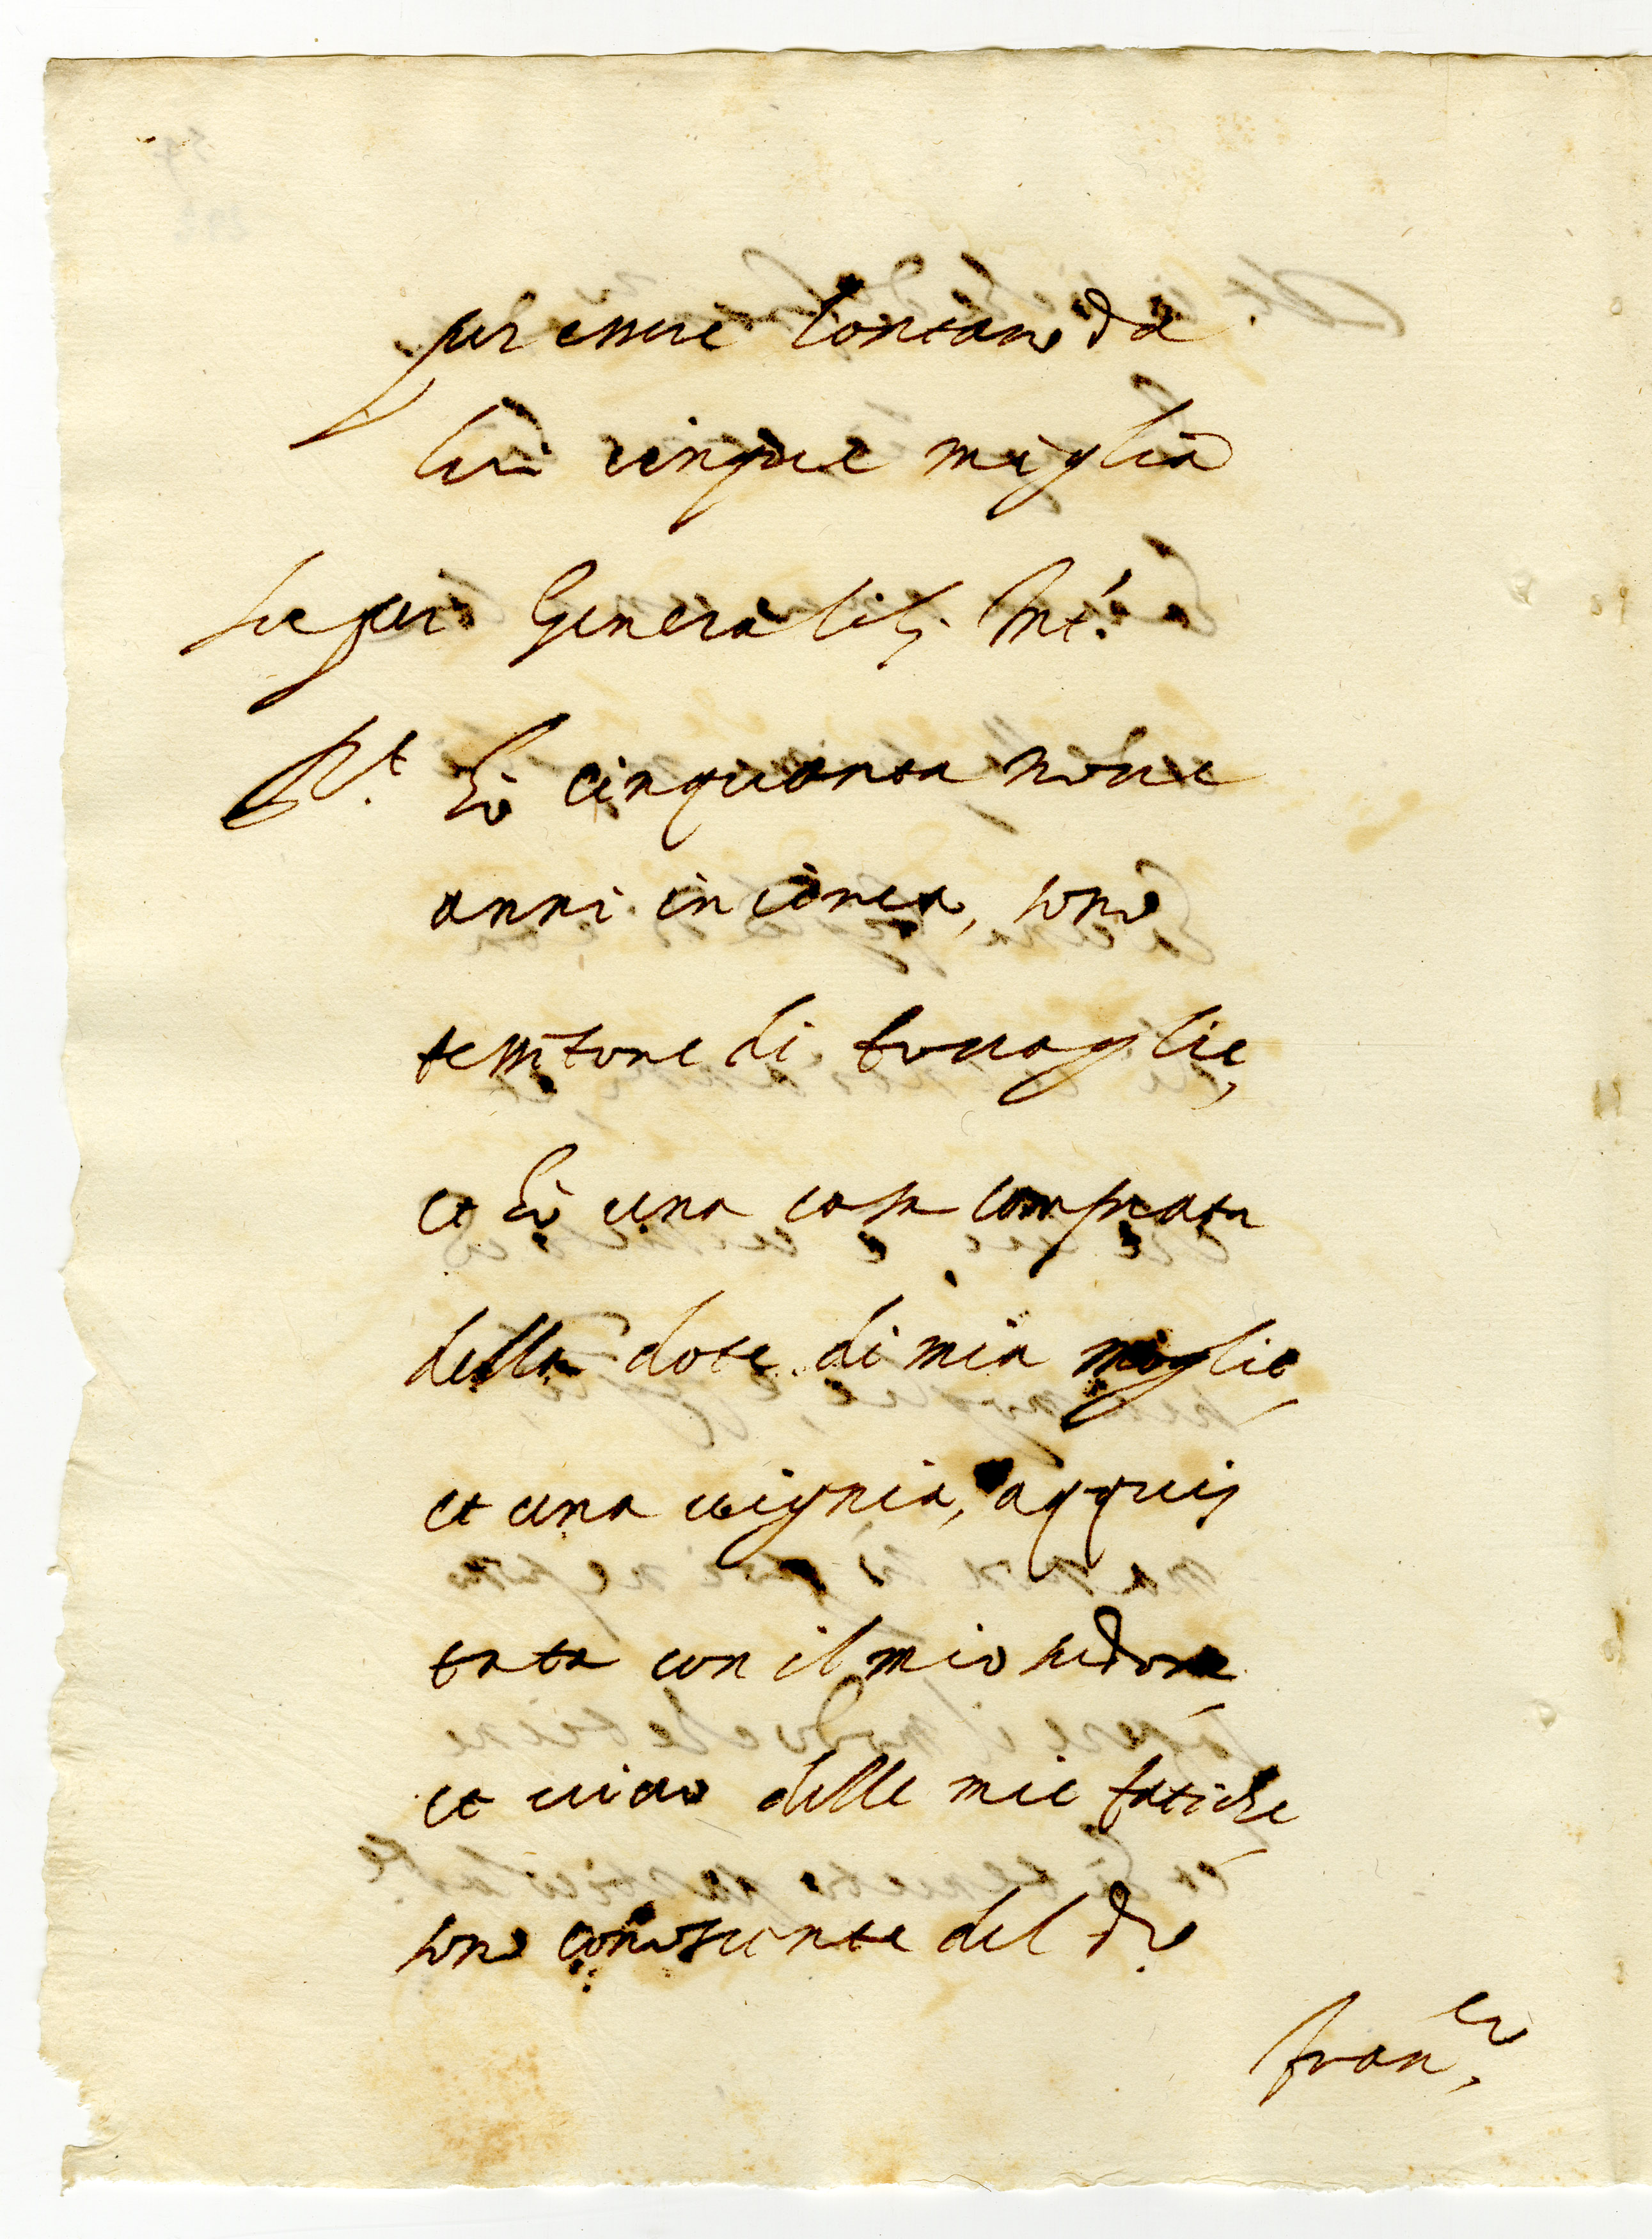 per essere lontano da
lui cinque miglia
super Generalib. Int.
R.t hò cinquanta nove
anni in circa, sono
tessitore di tovaglie,
et hò una casa comprata
della dote di mia moglie,
et una vignia, acquis
tata con il mio sudore
et vivo delle mie fatiche
sono conoscente del do
Fran.co